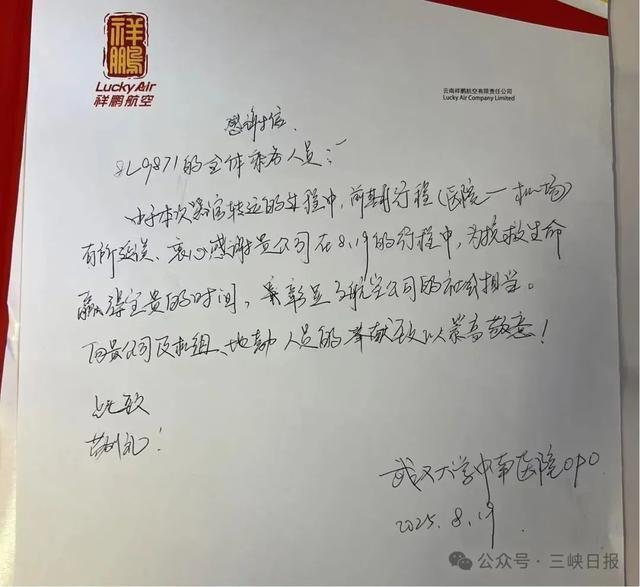 祥鹏
Lucky Air
祥鹏航空
云南祥鹏航空有限责任公司
Lucky Air Company Limited
感谢信
8L9871的全体乘务人员:
由于本次器官转运的过程中,前期行程(医院—机场)
有所延误、衷心感谢贵公司在8.19的行程中,为挽救生命
赢得宝贵的时间,彰显了航空公司的社会担当。
向贵公司及机组、地勤人员的奉献致以崇高敬意!
此致
敬礼!
武汉大学中南医院OPO
2025.8.19
公众号·三峡日报